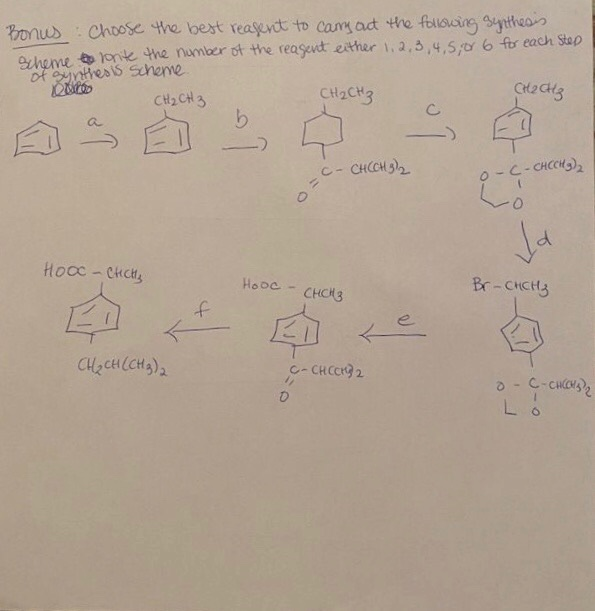 Bonus : Choose the best reagent to carry out the following synthesis
Scheme write the number of the reagent either 1, 2, 3, 4, 5, or 6 for each step
of synthesis scheme.
a
CH2CH3
b
CH2CH3
C - CH(CH3)2
O
c
CH2CH3
O - C - CH(CH3)2
O
d
Br - CHCH3
O - C - CH(CH3)2
O
e
HOOC - CHCH3
C - CHCCH3)2
O
f
HOOC - CHCH3
CH2CH(CH3)2